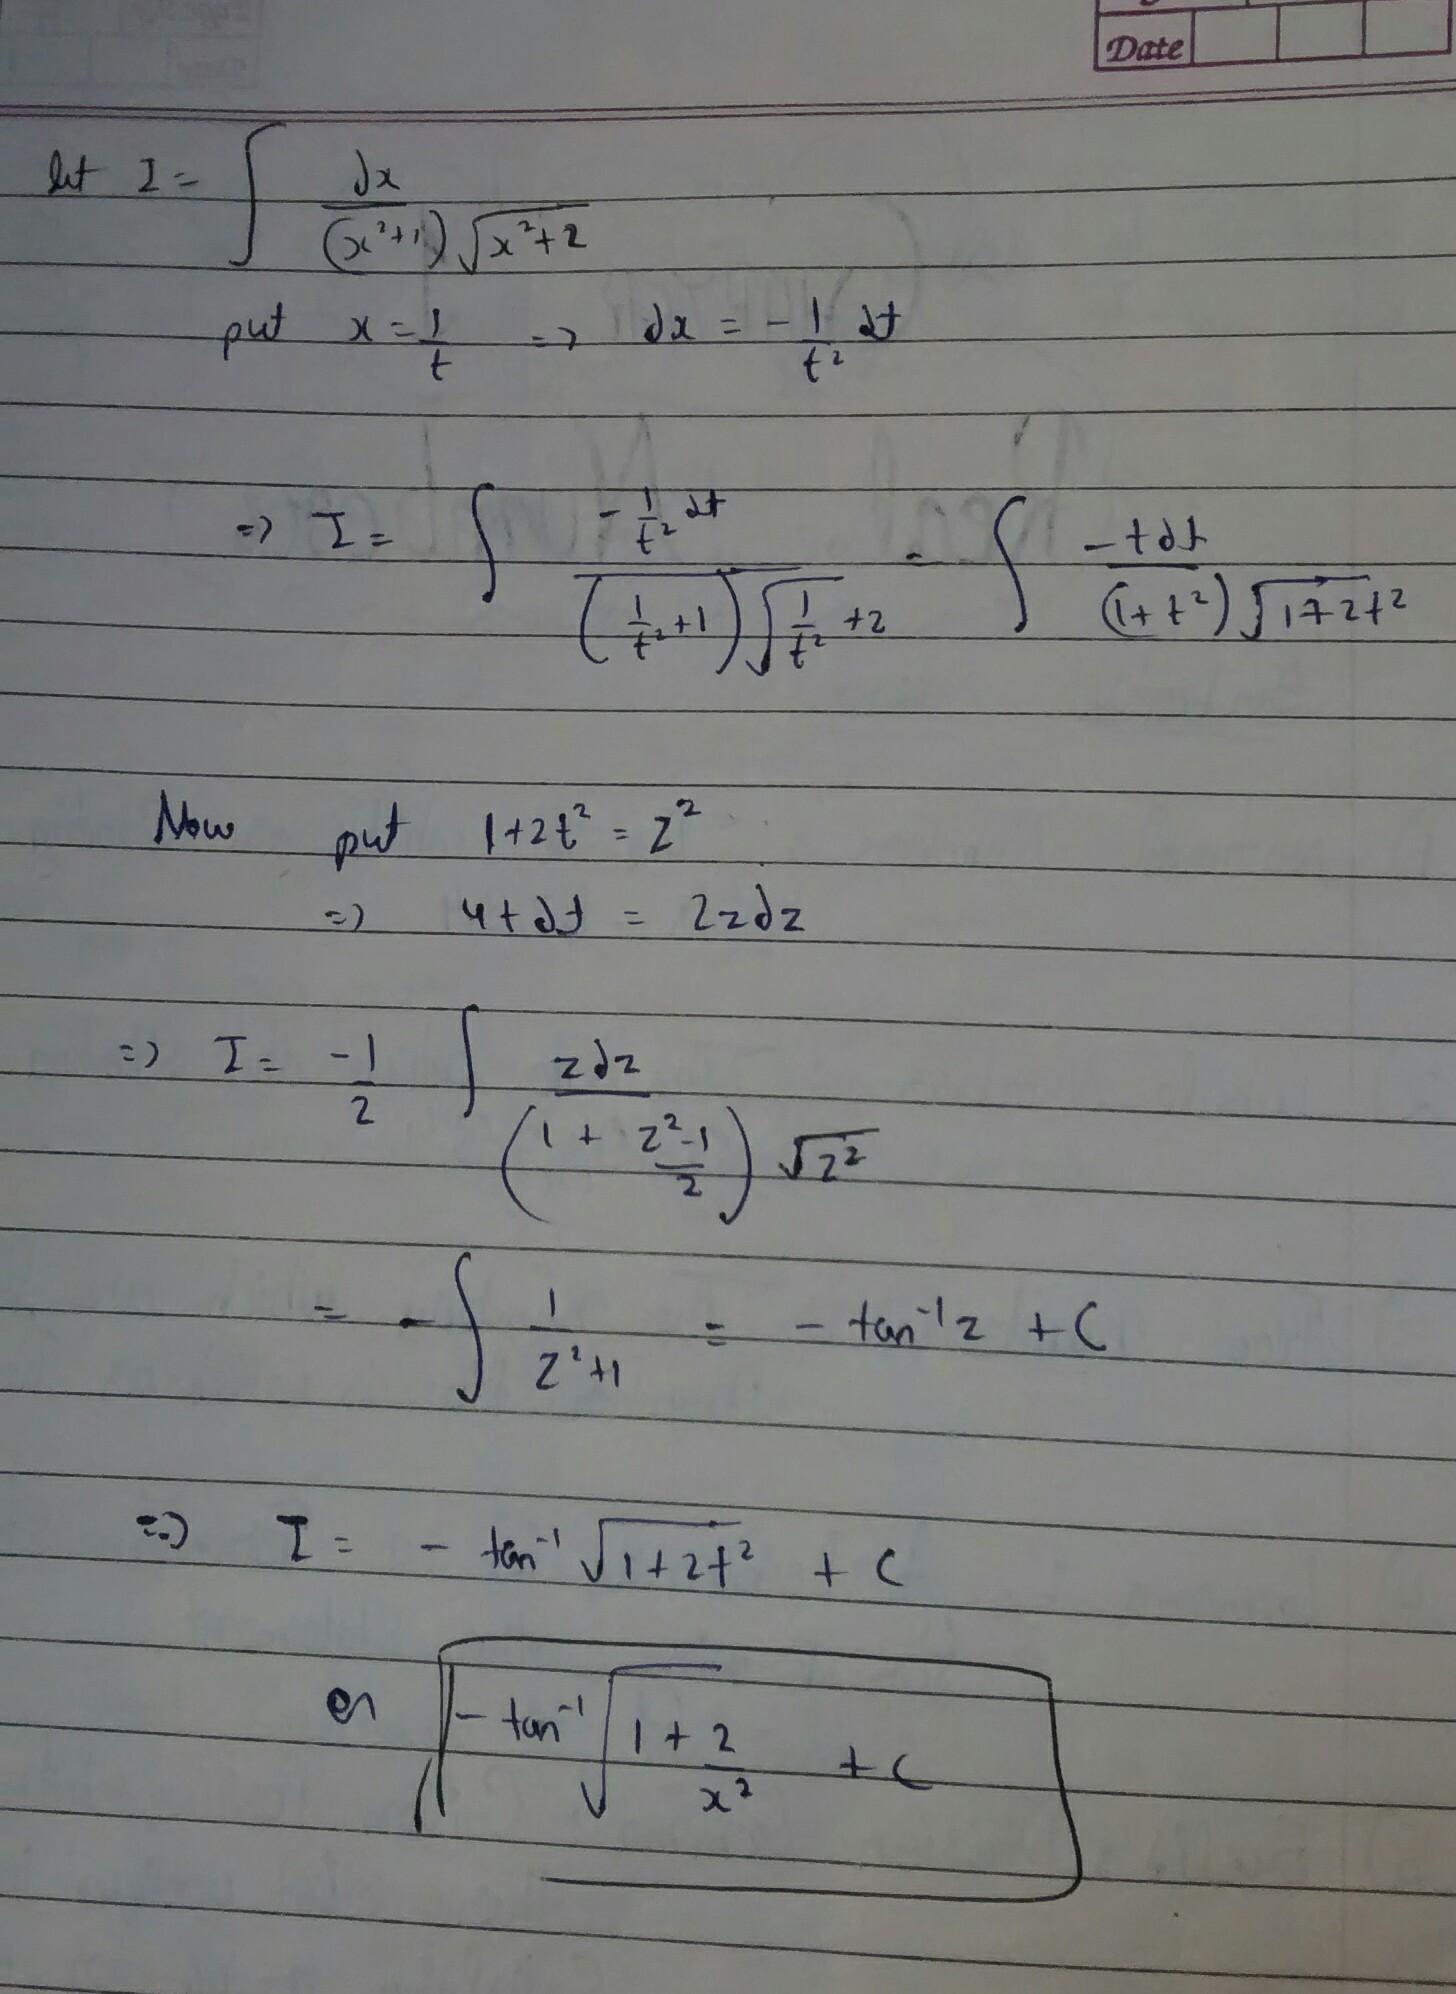 Date
let I = ∫ dx / (x²+1)√(x²+2)
put x = 1/t => dx = -1/t² dt
=> I = ∫ -1/t² dt / (1/t²+1)√(1/t²+2) = ∫ -tdt / (1+t²)√(1+2t²)
Now put 1+2t² = z²
=> 4tdt = 2zdz
=> I = -1/2 ∫ zdz / (1 + z²-1/2) √z²
= -∫ 1/z²+1 = - tan⁻¹z + C
=> I = - tan⁻¹ √(1+2t²) + C
or - tan⁻¹ √(1+2/x²) + C